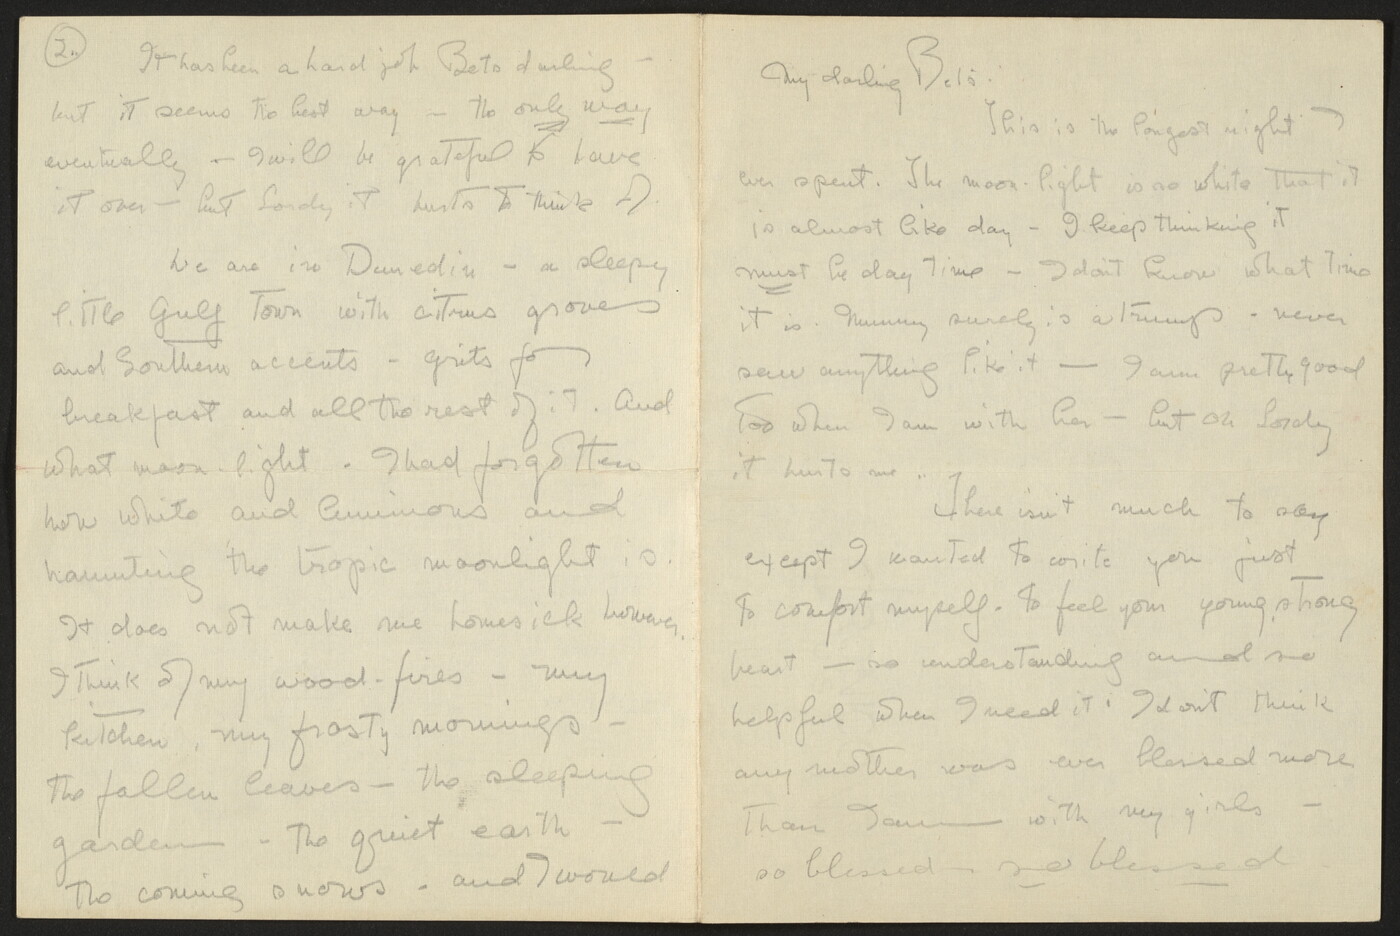 My darling Bets:
This is the longest night I
ever spent. The moon-light is so white that it
is almost like day - I keep thinking it
must be day time - I don't know what time
it is. Mummy surely is a trump - never
saw anything like it — I am pretty good
too when I am with her — but oh Lordy
it hurts me ..
There isn't much to say
except I wanted to write you just
to comfort myself. To feel your young, strong
heart — so understanding and so
helpful when I need it. I don't think
any mother was ever blessed more
than I am with my girls —
so blessed - so blessed
2.
It has been a hard job Bets darling —
but it seems the best way — the only way
eventually — I will be grateful to have
it over — but Lordy it hurts to think of.
We are in Dunedin — a sleepy
little Gulf Town with citrus groves
and Southern accents - grits for
breakfast and all the rest of it. And
what moon-light. I had forgotten
how white and luminous and
haunting the tropic moonlight is.
It does not make me homesick however.
I think of my wood-fires - my
kitchen, my frosty mornings -
the fallen leaves — the sleeping
garden - the quiet earth —
the coming snows. and I would